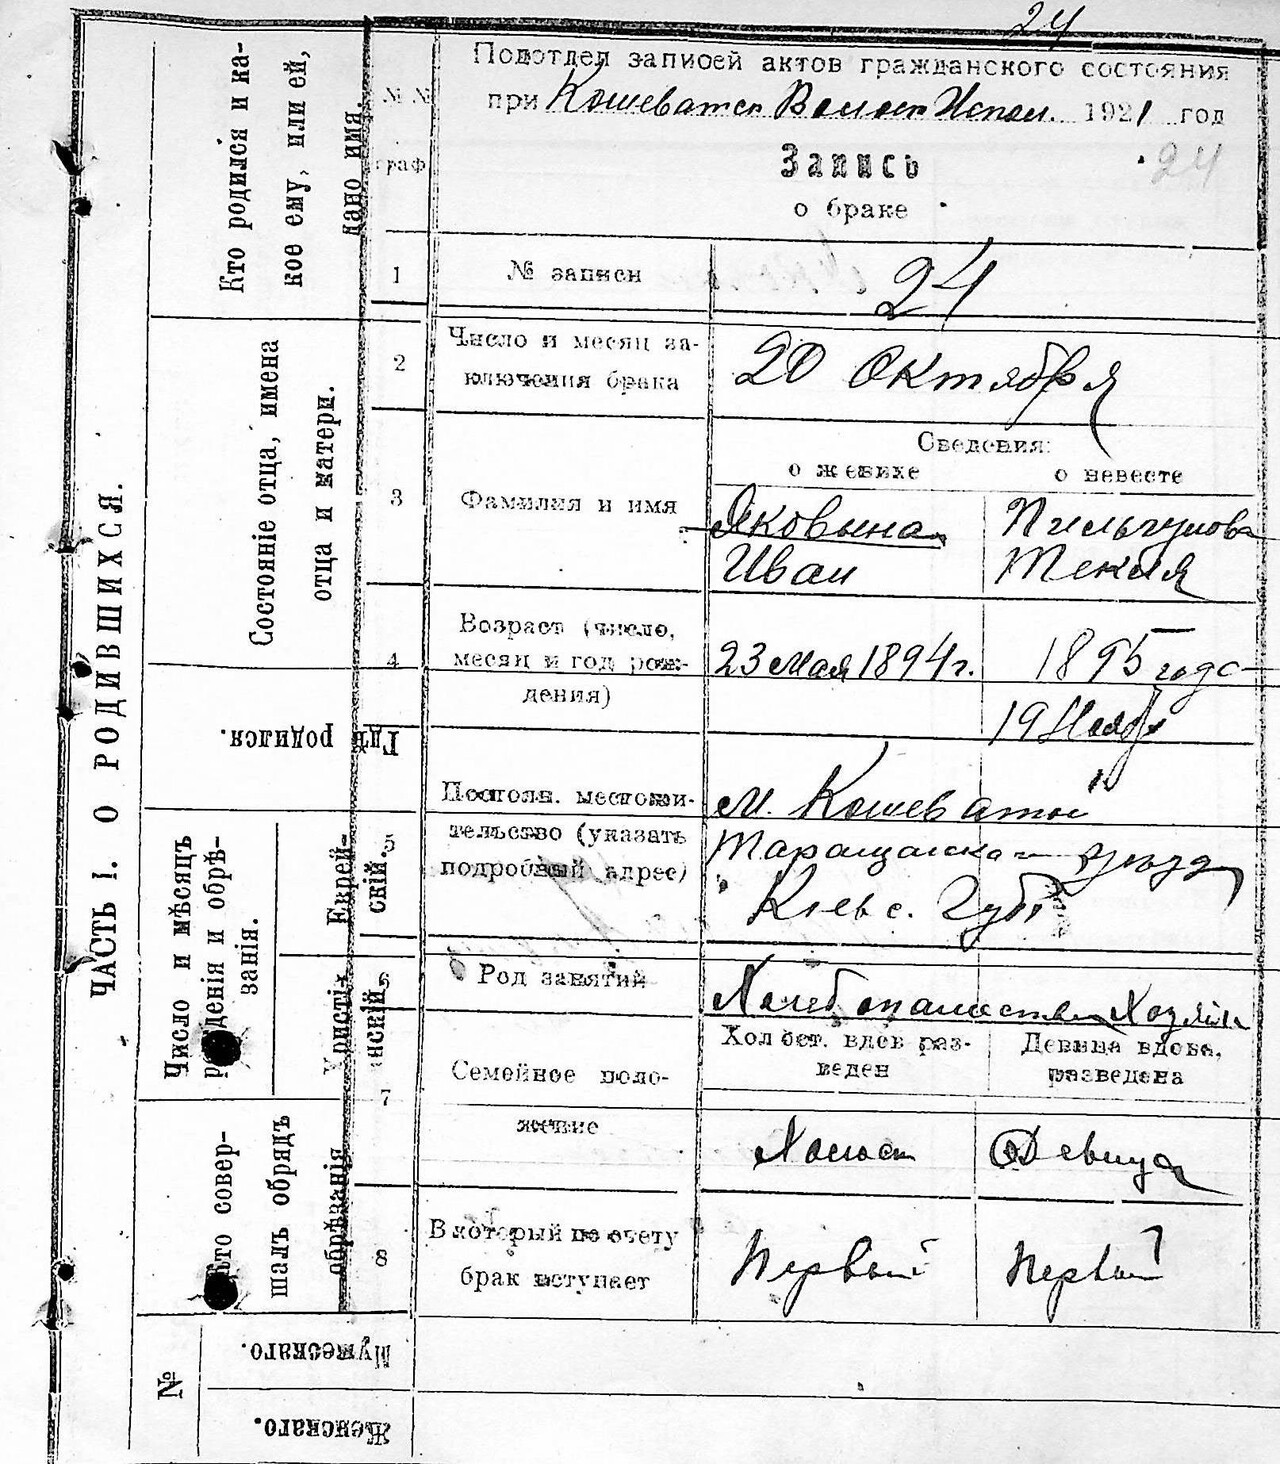 24
Подотдел записей актов гражданского состояния
при Кошеватск Волост Испол. 1921 год
24
Запись
о браке
№ №
граф
1
№ записи
24
2
Число и месяц за-
ключения брака
20 Октября
Сведения:
о женихе
о невесте
3
Фамилия и имя
Яковына
Иван
Текля
4
Возраст (число,
месяц и год рож-
дения)
23 Мая 1894 г.
1895 года
19 Ноябр
5
Постоян. местожи-
тельство (указать
подробный адрес)
м. Кошеватой
Таращанског уезд
Киевс. Губ
6
Род занятий
7
Семейное поло-
жение
Холост. вдов раз-
веден
Девица вдова,
разведена
Холост
Девица
8
В который по счету
брак вступает
Первый
Первый
ЧАСТЬ I. О РОДИВШИХСЯ.
Кто родился и ка-
кое ему, или ей,
дано имя.
Состояніе отца, имена
отца и матери.
Гдѣ родился.
Число и мѣсяцъ
рожденія и обрѣ-
занія.
Еврей-
скій.
Христі-
анскій.
Кто совер-
шалъ обрядъ
обрѣзанія
№
Мужескаго.
Женскаго.